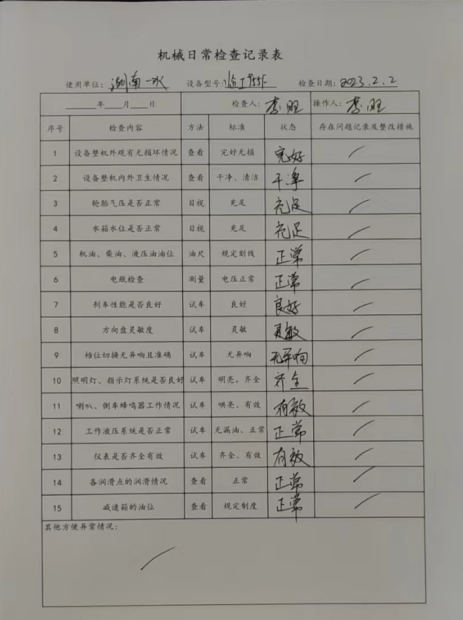 机械日常检查记录表
使用单位：湖南一水 设备型号： 检查日期：2023.2.2
____年___月___日 检查人：李旺 操作人：李旺
序号 检查内容 方法 标准 状态 存在问题记录及整改措施
1 设备整机外观有无损坏情况 查看 完好无损 完好
2 设备整机内外卫生情况 查看 干净、清洁 干净
3 轮胎气压是否正常 目视 充足 充足
4 水箱水位是否正常 目视 充足 充足
5 机油、柴油、液压油油位 油尺 规定刻线 正常
6 电瓶检查 测量 电压正常 正常
7 刹车性能是否良好 试车 良好 良好
8 方向盘灵敏度 试车 灵敏 灵敏
9 档位切换无异响且准确 试车 无异响 无异响
10 照明灯、指示灯系统是否良好 试车 明亮、齐全 齐全
11 喇叭、倒车蜂鸣器工作情况 试车 哄亮、有效 有效
12 工作液压系统是否正常 试车 无漏油、正常 正常
13 仪表是否齐全有效 试车 齐全、有效 有效
14 各润滑点的润滑情况 查看 正常 正常
15 减速箱的油位 查看 规定制度 正常
其他方便异常情况：